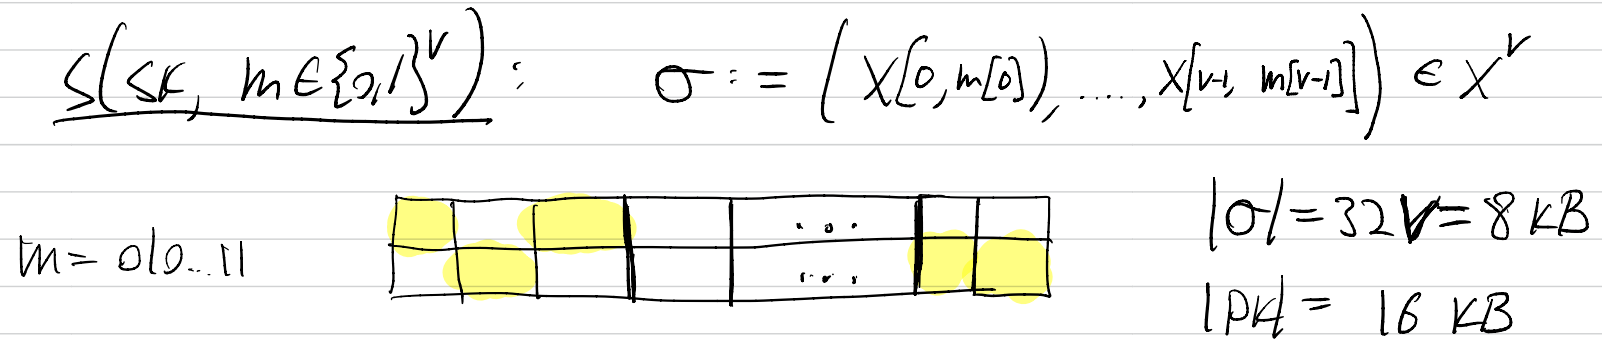 S(SK, m∈{0,1}^v): σ := (X[0,m[0]), ...., X[v-1, m[v-1]]) ∈ X^v
m = 010...11
...
...
|σ| = 32v = 8 KB
|pk| = 16 KB